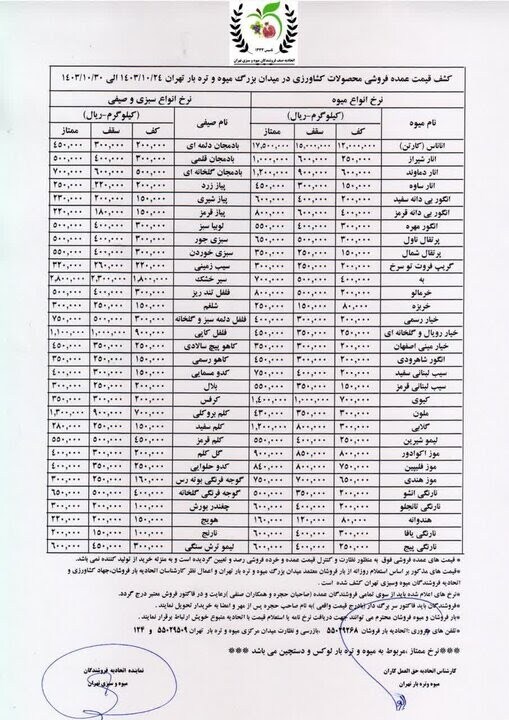 تاسیس ۱۳۴۳
اتحادیه صنف فروشندگان میوه و سبزی تهران
کشف قیمت عمده فروشی محصولات کشاورزی در میدان بزرگ میوه و تره بار تهران ۱۴۰۳/۱۰/۲۴ الی ۱۴۰۳/۱۰/۳۰
نرخ انواع میوه نرخ انواع سبزی و صیفی
نام میوه (کیلوگرم-ریال) نام صیفی (کیلوگرم-ریال)
کف سقف ممتاز کف سقف ممتاز
آناناس (کارتن) ۱۲,۰۰۰,۰۰۰ ۱۵,۰۰۰,۰۰۰ ۱۷,۵۰۰,۰۰۰ بادمجان دلمه ای ۲۰۰,۰۰۰ ۳۰۰,۰۰۰ ۴۵۰,۰۰۰
انار شیراز ۲۵۰,۰۰۰ ۶۰۰,۰۰۰ ۱,۰۰۰,۰۰۰ بادمجان قلمی ۲۰۰,۰۰۰ ۴۰۰,۰۰۰ ۵۰۰,۰۰۰
انار دماوند ۶۰۰,۰۰۰ ۹۰۰,۰۰۰ ۱,۲۰۰,۰۰۰ بادمجان گلخانه ای ۵۰۰,۰۰۰ ۶۰۰,۰۰۰ ۷۰۰,۰۰۰
انار ساوه ۱۵۰,۰۰۰ ۳۰۰,۰۰۰ ۴۵۰,۰۰۰ پیاز زرد ۱۵۰,۰۰۰ ۲۲۰,۰۰۰ ۲۵۰,۰۰۰
انگور بی دانه سفید ۲۰۰,۰۰۰ ۴۰۰,۰۰۰ ۶۰۰,۰۰۰ پیاز شیری ۱۵۰,۰۰۰ ۲۰۰,۰۰۰ ۲۳۰,۰۰۰
انگور بی دانه قرمز ۴۰۰,۰۰۰ ۶۰۰,۰۰۰ ۸۰۰,۰۰۰ پیاز قرمز ۱۵۰,۰۰۰ ۱۸۰,۰۰۰ ۲۲۰,۰۰۰
انگور مهره ۳۰۰,۰۰۰ ۴۰۰,۰۰۰ ۵۵۰,۰۰۰ لوبیا سبز ۳۰۰,۰۰۰ ۴۰۰,۰۰۰ ۵۰۰,۰۰۰
پرتقال ناول ۳۵۰,۰۰۰ ۵۰۰,۰۰۰ ۶۵۰,۰۰۰ سبزی جور ۳۰۰,۰۰۰ ۴۰۰,۰۰۰ ۵۰۰,۰۰۰
پرتقال شمال ۱۵۰,۰۰۰ ۲۵۰,۰۰۰ ۳۵۰,۰۰۰ سبزی خوردن ۳۰۰,۰۰۰ ۴۰۰,۰۰۰ ۵۵۰,۰۰۰
گریپ فروت تو سرخ ۲۰۰,۰۰۰ ۳۰۰,۰۰۰ ۳۵۰,۰۰۰ سیب زمینی ۲۲۰,۰۰۰ ۲۶۰,۰۰۰ ۳۲۰,۰۰۰
به ۴۰۰,۰۰۰ ۵۰۰,۰۰۰ ۷۰۰,۰۰۰ سیر خشک ۱,۸۰۰,۰۰۰ ۲,۳۰۰,۰۰۰ ۲,۸۰۰,۰۰۰
خرمالو ۲۰۰,۰۰۰ ۵۰۰,۰۰۰ ۸۰۰,۰۰۰ فلفل تند ریز ۳۰۰,۰۰۰ ۴۰۰,۰۰۰ ۵۰۰,۰۰۰
خربزه ۸۰,۰۰۰ ۱۵۰,۰۰۰ ۲۵۰,۰۰۰ شلغم ۱۵۰,۰۰۰ ۲۵۰,۰۰۰ ۳۰۰,۰۰۰
خیار رسمی ۲۰۰,۰۰۰ ۳۰۰,۰۰۰ ۴۰۰,۰۰۰ فلفل دلمه سبز و گلخانه ۳۰۰,۰۰۰ ۵۰۰,۰۰۰ ۷۵۰,۰۰۰
خیار رویال و گلخانه ای ۲۵۰,۰۰۰ ۳۵۰,۰۰۰ ۴۵۰,۰۰۰ فلفل کاپی ۹۰۰,۰۰۰ ۱,۰۰۰,۰۰۰ ۱,۱۰۰,۰۰۰
خیار مینی اصفهان ۲۰۰,۰۰۰ ۳۰۰,۰۰۰ ۴۰۰,۰۰۰ کاهو پیچ سالادی ۲۵۰,۰۰۰ ۳۵۰,۰۰۰ ۴۵۰,۰۰۰
انگور شاهرودی ۲۵۰,۰۰۰ ۳۰۰,۰۰۰ ۴۰۰,۰۰۰ کاهو رسمی ۱۵۰,۰۰۰ ۲۵۰,۰۰۰ ۳۵۰,۰۰۰
سیب لبنانی سفید ۲۰۰,۰۰۰ ۴۰۰,۰۰۰ ۷۵۰,۰۰۰ کدو مسمایی ۱۵۰,۰۰۰ ۳۰۰,۰۰۰ ۴۰۰,۰۰۰
سیب لبنانی قرمز ۱۵۰,۰۰۰ ۳۵۰,۰۰۰ ۵۵۰,۰۰۰ بلال ۲۰۰,۰۰۰ ۲۵۰,۰۰۰ ۳۰۰,۰۰۰
کیوی ۷۰۰,۰۰۰ ۱,۰۰۰,۰۰۰ ۱,۴۰۰,۰۰۰ کرفس ۲۰۰,۰۰۰ ۲۵۰,۰۰۰ ۳۵۰,۰۰۰
ملون ۳۰۰,۰۰۰ ۳۵۰,۰۰۰ ۴۳۰,۰۰۰ کلم بروکلی ۷۰۰,۰۰۰ ۹۰۰,۰۰۰ ۱,۳۰۰,۰۰۰
گلابی ۳۰۰,۰۰۰ ۸۰۰,۰۰۰ ۱,۲۰۰,۰۰۰ کلم سفید ۱۵۰,۰۰۰ ۲۵۰,۰۰۰ ۲۸۰,۰۰۰
لیمو شیرین ۲۵۰,۰۰۰ ۴۰۰,۰۰۰ ۵۵۰,۰۰۰ کلم قرمز ۴۵۰,۰۰۰ ۵۰۰,۰۰۰ ۵۵۰,۰۰۰
موز اکوادور ۸۵۰,۰۰۰ ۸۰۰,۰۰۰ ۹۰۰,۰۰۰ گل کلم ۲۰۰,۰۰۰ ۳۰۰,۰۰۰ ۴۰۰,۰۰۰
موز فلیپین ۷۵۰,۰۰۰ ۸۰۰,۰۰۰ ۸۴۰,۰۰۰ کدو حلوایی ۲۵۰,۰۰۰ ۳۵۰,۰۰۰ ۴۰۰,۰۰۰
موز هندی ۶۵۰,۰۰۰ ۷۰۰,۰۰۰ ۷۵۰,۰۰۰ گوجه فرنگی بوته رس ۱۶۰,۰۰۰ ۲۵۰,۰۰۰ ۳۰۰,۰۰۰
نارنگی انشو ۲۰۰,۰۰۰ ۳۵۰,۰۰۰ ۵۰۰,۰۰۰ گوجه فرنگی گلخانه ۴۰۰,۰۰۰ ۵۰۰,۰۰۰ ۶۵۰,۰۰۰
نارنگی تانجلو ۲۰۰,۰۰۰ ۳۰۰,۰۰۰ ۴۰۰,۰۰۰ چغندر پورش ۱۰۰,۰۰۰ ۲۰۰,۰۰۰ ۳۰۰,۰۰۰
هندوانه ۸۰,۰۰۰ ۱۲۰,۰۰۰ ۱۶۰,۰۰۰ هویج ۱۵۰,۰۰۰ ۲۰۰,۰۰۰ ۲۲۰,۰۰۰
نارنگی یافا ۲۰۰,۰۰۰ ۳۰۰,۰۰۰ ۴۰۰,۰۰۰ نارنج ۱۰۰,۰۰۰ ۱۵۰,۰۰۰ ۲۰۰,۰۰۰
نارنگی پیج ۲۵۰,۰۰۰ ۴۵۰,۰۰۰ ۶۰۰,۰۰۰ لیمو ترش سنگی ۳۰۰,۰۰۰ ۴۵۰,۰۰۰ ۶۰۰,۰۰۰
* قیمت های عمده فروشی فوق به منظور نظارت و کنترل قیمت عمده و خرده فروشی رصد و تعیین گردیده است و به منزله خرید از تولید کننده نمی باشد.
*قیمت های مذکور بر اساس استعلام روزانه از بار فروشان معتمد میدان بزرگ میوه و تره بار تهران و اعمال نظر کارشناسان اتحادیه بارفروشان،جهاد کشاورزی و
اتحادیه فروشندگان میوه وسبزی تهران کشف شده است .
*نرخ های اعلام شده باید از سوی تمامی بارفروشان عمده (صاحبان حجره و همکاران صنفی )رعایت و در فاکتور فروش معتبر درج گردد.
*فروشندگان باید فاکتور سر برگ دار (بادرج قیمت واقعی )به نام صاحب حجره پس از مهر و امضا به خریدار تحویل نمایند .
*بار فروشان و فروشندگان میوه محترم می توانند جهت دریافت نرخ نامه یا استعلام قیمت با اتحادیه متبوع خویش ارتباط برقرار نمایند .
*تلفن های فوری :اتحادیه بار فروشان ۵۵۰۲۹۲۶۸ ،بازرسی و نظارت میدان مرکزی میوه و تره بار تهران ۵۵۰۲۹۵۰۹ و ۱۲۴
***نرخ ممتاز ،مربوط به میوه و تره بار لوکس و دستچین می باشد ***
کارشناس اتحادیه حق العمل کاران نماینده اتحادیه فروشندگان
میوه وتره بار تهران میوه و سبزی تهران